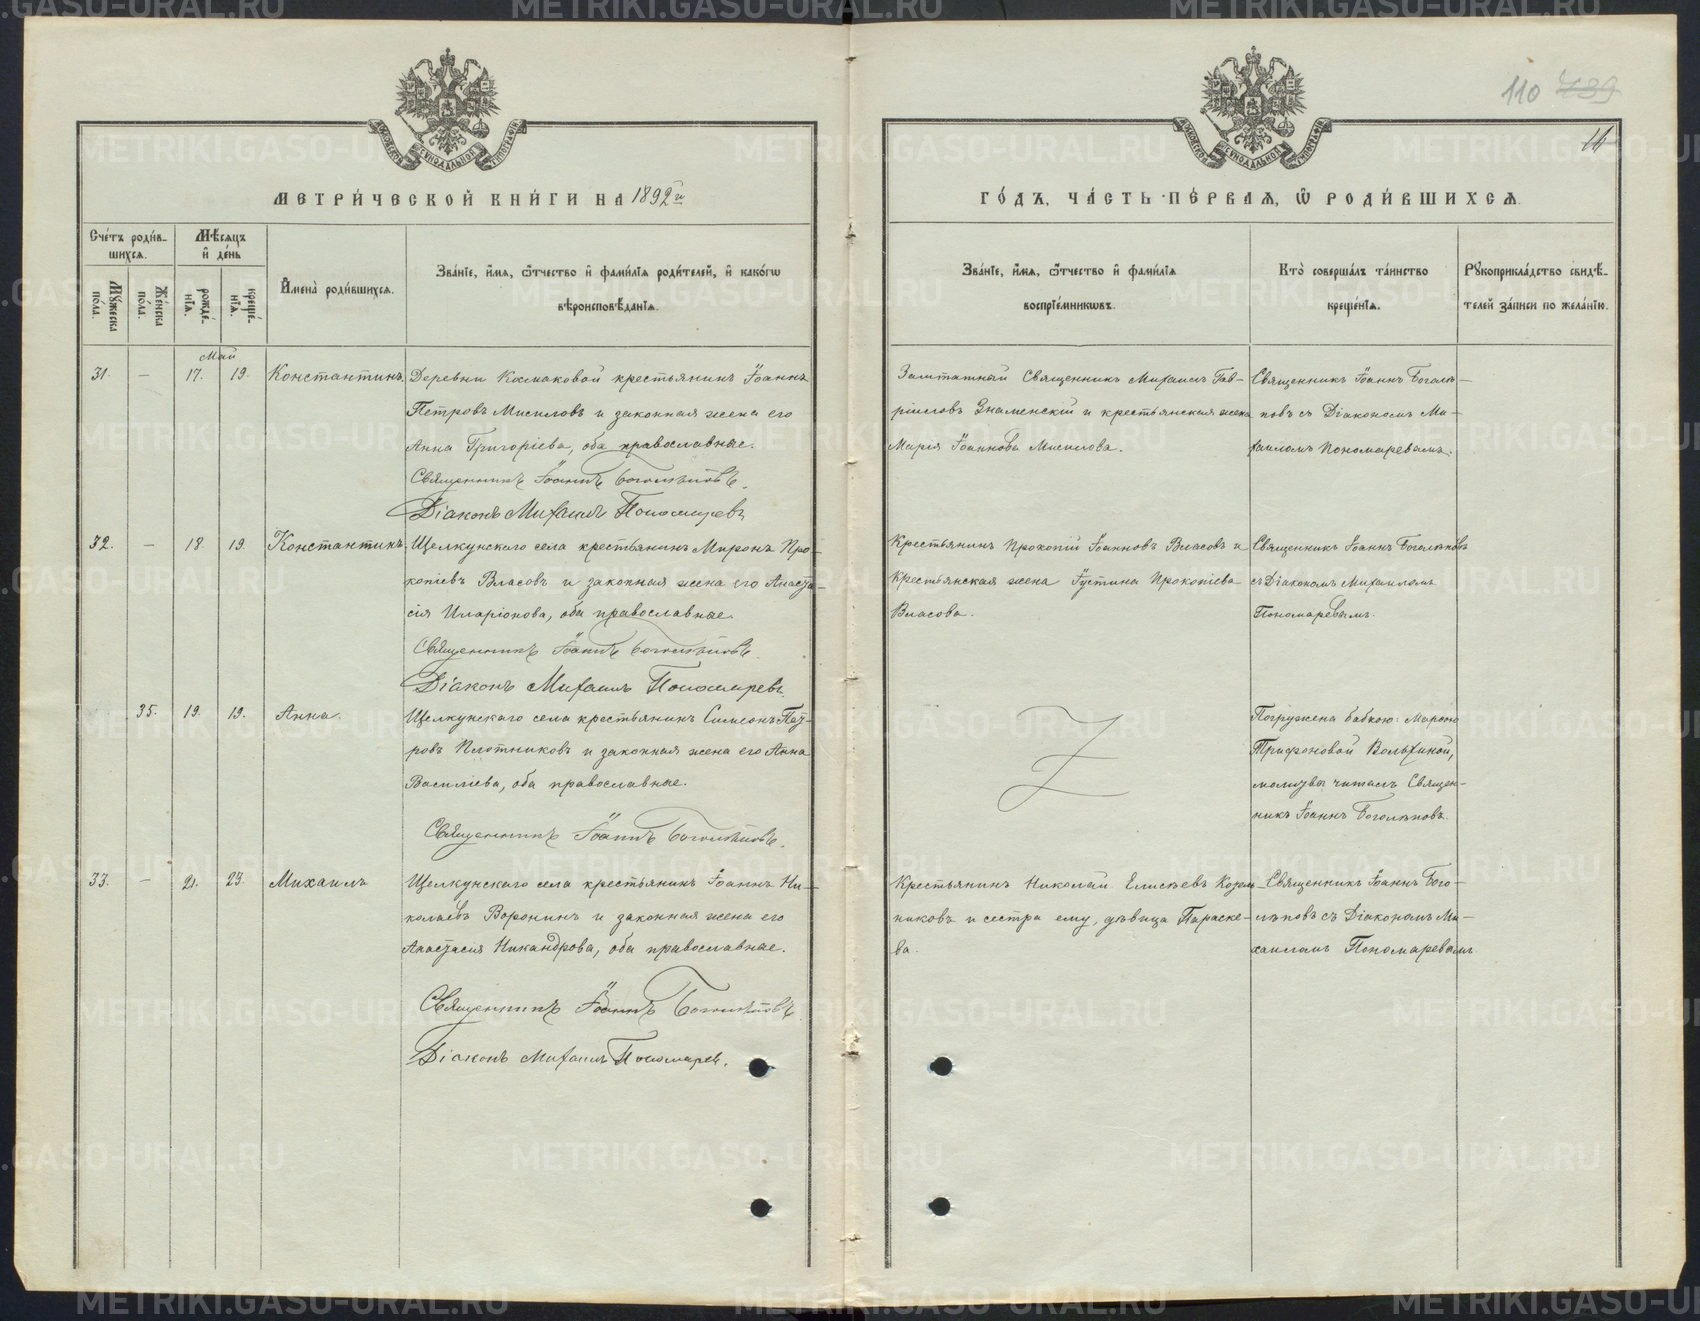 110 739
11
МОСКОВСКОЙ СѴНОДАЛЬНОЙ ТИПОГРАФІИ
МОСКОВСКОЙ СѴНОДАЛЬНОЙ ТИПОГРАФІИ
МЕТРИ́ЧЕСКОЙ КНИ́ГИ НА 1892й
ГО́ДЪ, ЧА́СТЬ ПЕ́РВАѦ, Ѡ РОДИ́ВШИХСѦ.
Сче́тъ роди́в-
шихсѧ.
Мꙋжеска по́ла.
Же́нска по́ла.
Мѣ́сяцъ
и҆ де́нь
рожде́-
нїѧ.
креще́-
нїѧ.
И҆мена̀ роди́вшихсѧ.
Зва́нїе, и҆́мѧ, ѻ҆́тчество и҆ фами́лїѧ роди́телей, и҆ како́гѡ
вѣроисповѣ́данїѧ.
Зва́нїе, и҆́мѧ, ѻ҆́тчество и҆ фами́лїѧ
воспрїе́мникѡвъ.
Кто̀ соверша́лъ та́инство
креще́нїѧ.
Рꙋкоприкла́дство свидѣ́-
телей за́писи по жела́нїю.
Май
31. — 17. 19. Константинъ.
Деревни Космаковой крестьянинъ Іоаннъ
Петровъ Мисиловъ и законная жена его
Анна Григоріева, оба православные.
Священникъ Іоаннъ Боголѣповъ.
Діаконъ Михаилъ Пономаревъ
Заштатный Священникъ Михаилъ Гав-
ріиловъ Знаменскій и крестьянская жена
Марія Іоаннова Мисилова.
Священникъ Іоаннъ Боголѣ-
повъ съ Діакономъ Ми-
хаиломъ Пономаревымъ.
32. — 18. 19. Константинъ.
Щелкунскаго села крестьянинъ Миронъ Про-
копіевъ Власовъ и законная жена его Анаста-
сія Иларіонова, оба православные.
Священникъ Іоаннъ Боголѣповъ.
Діаконъ Михаилъ Пономаревъ.
Крестьянинъ Прокопій Іоанновъ Власовъ и
крестьянская жена Іустина Прокопіева
Власова.
Священникъ Іоаннъ Боголѣповъ
съ Діакономъ Михаиломъ
Пономаревымъ.
35. 19. 19. Анна.
Щелкунскаго села крестьянинъ Симеонъ Пет-
ровъ Плотниковъ и законная жена его Анна
Василіева, оба православные.
Священникъ Іоаннъ Боголѣповъ.
Погружена бабкою: Маріею
Трифоновой Волхиной,
молитвы читалъ Священ-
никъ Іоаннъ Боголѣповъ.
33. — 21. 23. Михаилъ
Щелкунскаго села крестьянинъ Іоаннъ Ни-
колаевъ Воронинъ и законная жена его
Анастасія Никандрова, оба православные.
Священникъ Іоаннъ Боголѣповъ.
Діаконъ Михаилъ Пономаревъ.
Крестьянинъ Николай Елисѣевъ Козель-
никовъ и сестра ему, дѣвица Параске-
ва.
Священникъ Іоаннъ Бого-
лѣповъ съ Діакономъ Ми-
хаиломъ Пономаревымъ.
METRIKI.GASO-URAL.RU